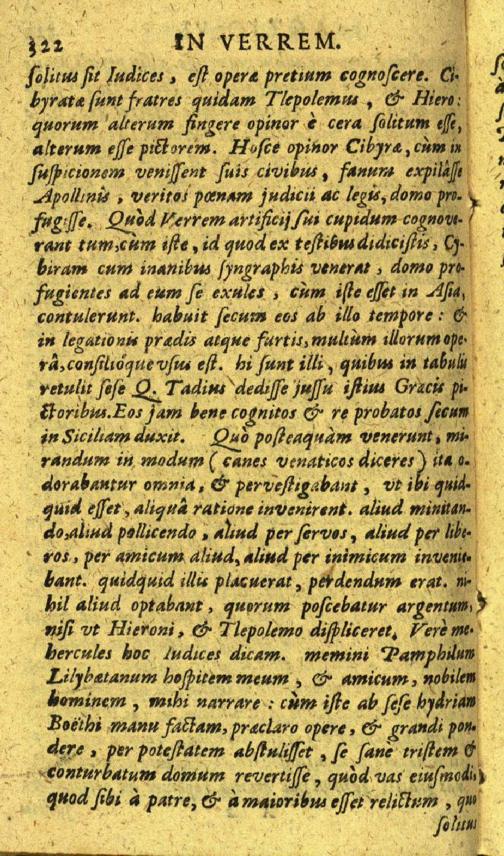 322 IN VERREM.
ſolitus ſit Iudices, eſt operæ pretium cognoſcere. Ci-
byratæ ſunt fratres quidam Tlepolemus, & Hiero:
quorum alterum fingere opinor è cera ſolitum eſſe,
alterum eſſe pictorem. Hoſce opinor Cibyræ, cùm in
ſuſpicionem veniſſent ſuis civibus, fanum expilâſſe
Apollinis, veritos pœnam judicii ac legis, domo pro-
fugiſſe. Quòd Verrem artificij ſui cupidum cognove-
rant tum, cùm iſte, id quod ex teſtibus didiciſtis, Cy-
biram cum inanibus ſyngraphis venerat, domo pro-
fugientes ad eum ſe exules, cùm iſte eſſet in Aſia,
contulerunt. habuit ſecum eos ab illo tempore: &
in legationis prædis atque furtis, multùm illorum ope-
râ, conſilióque vſus eſt. hi ſunt illi, quibus in tabulis
retulit ſeſe Q. Tadius dediſſe juſſu iſtius Græcis pi-
ctoribus. Eos jam bene cognitos & re probatos ſecum
in Siciliam duxit. Quò poſteaquàm venerunt, mi-
randum in modum (canes venaticos diceres) ita o-
dorabantur omnia, & perveſtigabant, vt ibi quid-
quid eſſet, aliquâ ratione invenirent. aliud minitan-
do, aliud pollicendo, aliud per ſervos, aliud per libe-
ros, per amicum aliud, aliud per inimicum invenie-
bant. quidquid illis placuerat, perdendum erat. ni-
hil aliud optabant, quorum poſcebatur argentum,
niſi vt Hieroni, & Tlepolemo diſpliceret. Verè me-
hercules hoc Iudices dicam. memini Pamphilum
Lilybætanum hoſpitem meum, & amicum, nobilem
hominem, mihi narrare: cùm iſte ab ſeſe hydriam
Boëthi manu factam, præclaro opere, & grandi pon-
dere, per poteſtatem abſtuliſſet, ſe ſane triſtem &
conturbatum domum revertiſſe, quòd vas eiuſmodi,
quod ſibi à patre, & à maioribus eſſet relictum, quo
ſolitus